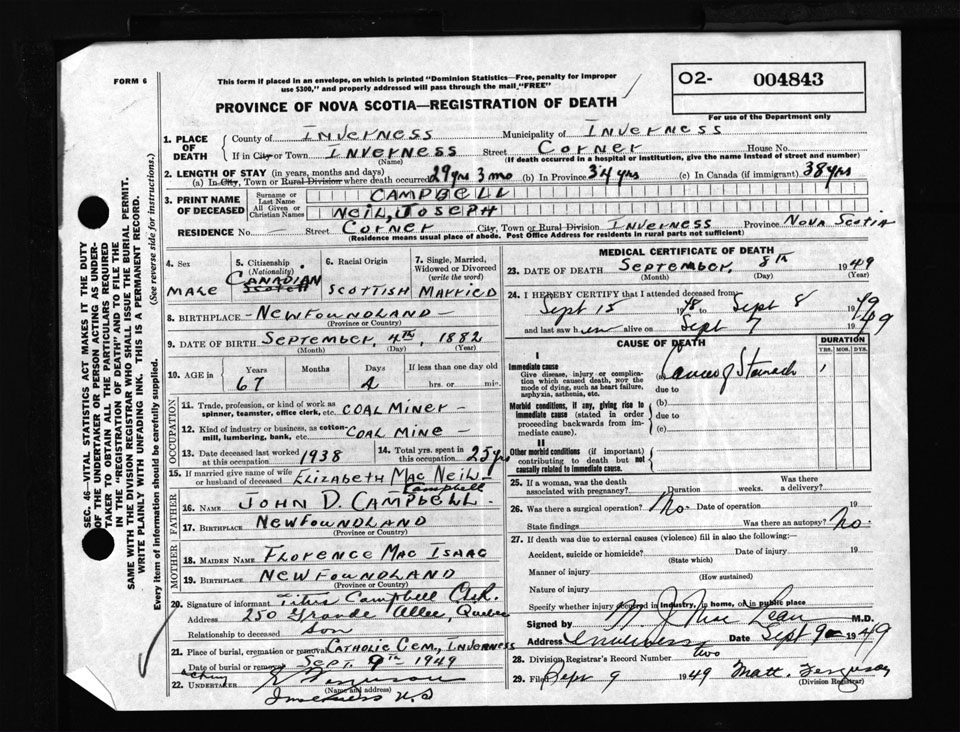 FORM 6
This form if placed in an envelope, on which is printed "Dominion Statistics—Free, penalty for improper
use $300," and properly addressed will pass through the mail "FREE"
O2- 004843
PROVINCE OF NOVA SCOTIA—REGISTRATION OF DEATH
For use of the Department only
1. PLACE OF DEATH
County of INVERNESS Municipality of INVERNESS
If in City or Town INVERNESS Street CORNER House No.
(Name) (If death occurred in a hospital or institution, give the name instead of street and number)
2. LENGTH OF STAY (in years, months and days)
(a) In City, Town or Rural Division where death occurred 29 yrs 3 mo (b) In Province 34 yrs (c) In Canada (if immigrant) 38 yrs
3. PRINT NAME OF DECEASED
Surname or Last Name CAMPBELL
All Given or Christian Names NEIL, JOSEPH
RESIDENCE No. — Street CORNER City, Town or Rural Division INVERNESS Province NOVA SCOTIA
(Residence means usual place of abode. Post Office Address for residents in rural parts not sufficient)
4. Sex MALE
5. Citizenship (Nationality) CANADIAN SCOTCH
6. Racial Origin SCOTTISH
7. Single, Married, Widowed or Divorced (write the word) MARRIED
8. BIRTHPLACE - NEWFOUNDLAND -
(Province or Country)
9. DATE OF BIRTH SEPTEMBER, 4TH, 1882
(Month) (Day) (Year)
10. AGE IN Years 67 Months Days 4 If less than one day old hrs. or min.
OCCUPATION
11. Trade, profession, or kind of work as spinner, teamster, office clerk, etc. COAL MINER -
12. Kind of industry or business, as cotton-mill, lumbering, bank, etc. COAL MINE -
13. Date deceased last worked at this occupation 1938 14. Total yrs. spent in this occupation 25 yrs
15. If married give name of wife or husband of deceased ELIZABETH MAC NEIL - Campbell
FATHER
16. NAME JOHN D. CAMPBELL
17. BIRTHPLACE NEWFOUNDLAND
(Province or Country)
MOTHER
18. MAIDEN NAME FLORENCE MAC ISAAC
19. BIRTHPLACE NEWFOUNDLAND
(Province or Country)
20. Signature of informant Titus Campbell
Address 250 Grande Allee, Quebec
Relationship to deceased Son
21. Place of burial, cremation or removal CATHOLIC CEM., INVERNESS
Date of burial or removal SEPT. 9TH 1949
22. UNDERTAKER Ferguson
(Name and address)
Inverness N.S
MEDICAL CERTIFICATE OF DEATH
23. DATE OF DEATH SEPTEMBER, 8th 1949
(Month) (Day) (Year)
24. I HEREBY CERTIFY that I attended deceased from
Sept 15 1948 to Sept 8 1949
and last saw him alive on Sept 7 1949
CAUSE OF DEATH
DURATION
YRS. MOS. DYS.
I
Immediate cause
Give disease, injury or complication which caused death, NOT the mode of dying, such as heart failure, asphyxia, asthenia, etc.
(a) Cancer of Stomach 1
due to
Morbid conditions, if any, giving rise to immediate cause (stated in order proceeding backwards from immediate cause).
(b)
due to
(c)
II
Other morbid conditions (if important) contributing to death but not causally related to immediate cause.
25. If a woman, was the death associated with pregnancy? Duration weeks. Was there a delivery?
26. Was there a surgical operation? No. Date of operation 19
State findings Was there an autopsy? No.
27. If death was due to external causes (violence) fill in also the following:—
Accident, suicide or homicide? Date of injury 19
(State which)
Manner of injury
(How sustained)
Nature of injury
Specify whether injury occurred in industry, in home, or in public place
Signed by J Mac Lean M.D.
Address Inverness Date Sept 9 1949
28. Division Registrar's Record Number two
29. Filed Sept 9 1949 Matt. Ferguson
(Division Registrar)
SEC. 46—VITAL STATISTICS ACT MAKES IT THE DUTY
OF THE UNDERTAKER OR PERSON ACTING AS UNDER-
TAKER TO OBTAIN ALL THE PARTICULARS REQUIRED
IN THE "REGISTRATION OF DEATH" AND TO FILE THE
SAME WITH THE DIVISION REGISTRAR WHO SHALL ISSUE THE BURIAL PERMIT.
WRITE PLAINLY WITH UNFADING INK. THIS IS A PERMANENT RECORD.
Every item of information should be carefully supplied. (See reverse side for instructions.)